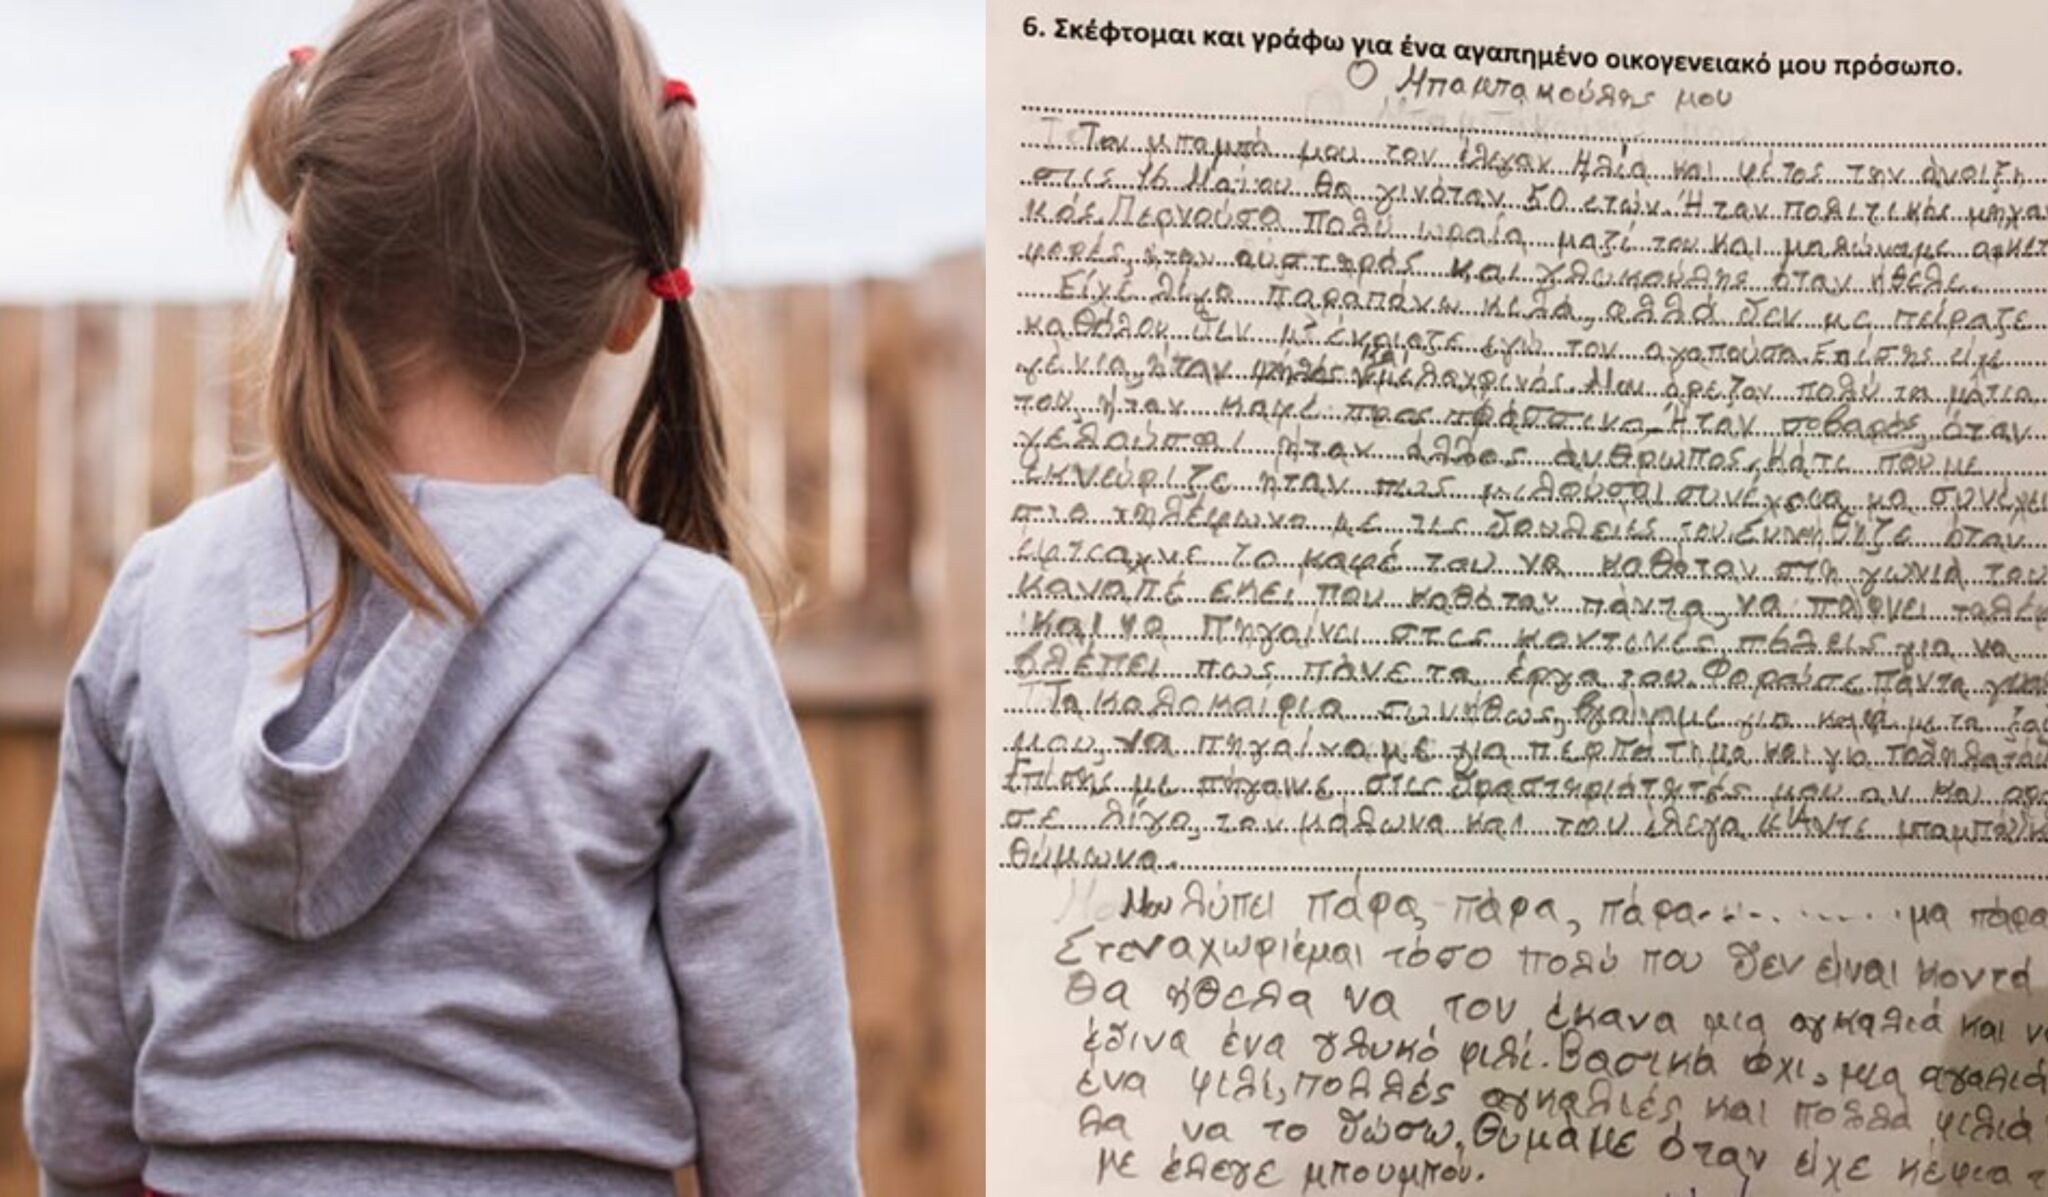 6. Σκέφτομαι και γράφω για ένα αγαπημένο οικογενειακό μου πρόσωπο.
Ο Μπαμπακούλης μου
Τον μπαμπά μου τον έλεγαν Ηλία και φέτος την άνοιξη
στις 16 Μαΐου θα γινόταν 50 ετών. Ήταν πολιτικός μηχα
κός. Περνούσα πολύ ωραία μαζί του και μαλώναμε αρκετ
φορές, ήταν αυστηρός και γλυκούλης όταν ήθελε.
Είχε λίγα παραπάνω κιλά, αλλά δεν με πείραζε
καθόλου δεν με ένοιαζε εγώ τον αγαπούσα. Επίσης είχε
γένια, ήταν ψηλός και μελαχρινός. Μου άρεζαν πολύ τα μάτια
του, ήταν καφέ προς πράσινα. Ήταν σοβαρός, όταν
γελούσε ήταν άλλος άνθρωπος, κάτι που με
εκνεύριζε ήταν πως μιλούσαι συνέχεια μα συνέχει
στο τηλέφωνο με τις δουλειές του. Συνήθηζε όταν
έφτιαχνε το καφέ του να καθόταν στη γωνιά του
καναπέ εκεί που καθόταν πάντα, να παίρνει τηλέφ
και να πηγαίνει στις κοντινές πόλεις για να
βλέπει πως πάνε τα έργα του. Φορούσε πάντα γυαλ
Τα καλοκαίρια συνήθως, βγαίναμε για καφέ με τα ξαδ
μου, να πηγαίναμε για περπάτημα και για ποδηλατάδ
Επίσης με πήγαινε στις δραστηριότητές μου αν και
σε λίγο, τον μάλωνα και του έλεγα «Άντε μπαμπά
θύμωνα.
Μου λύπει πάρα, πάρα, πάρα............ μα πάρα
Στεναχωριέμαι τόσο πολύ που δεν είναι κοντά
Θα ήθελα να του έκανα μια αγκαλιά και ν
έδινα ένα γλυκό φιλί. Βασικά όχι, μια αγαλιά
ένα φιλί, πολλές αγκαλιές και πολλά φιλιά
θα να το δώσω. Θυμάμε όταν είχε κέφια
με έλεγε μπουμπού.